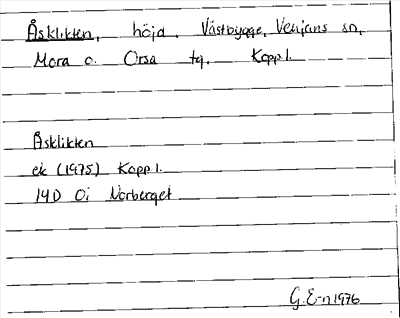 Åsklikten, höjd. Västbygge, Venjans sn,
Mora o. Orsa tg, Koppl.
Åsklikten
ek (1975) Koppl.
14D 0i Norberget
G. E-n 1976